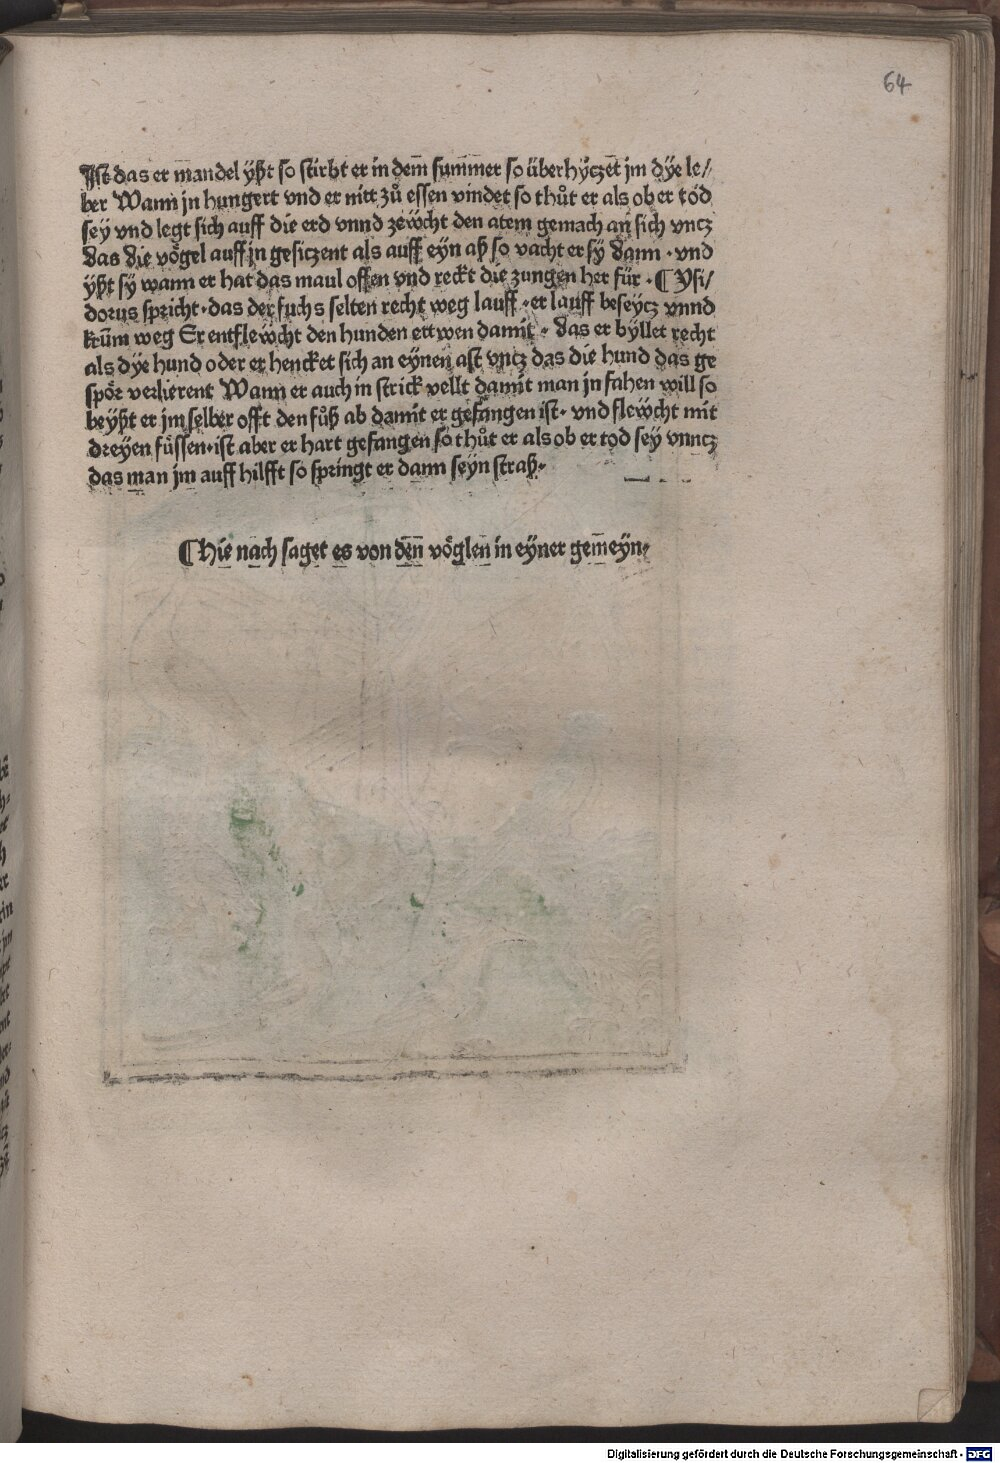 64
Ist das er mandel ÿßt so stirbt er in dem̄ sum̄mer so überhÿczēt jm dÿe le⸗
ber Wann jn hungert vnd er nitt zů essen vindet so thůt er als ob er tod
seÿ vnd legt sich auff die erd vnnd zeẅcht den atem gemach an sich vncz
das die vögel auff jn gesiczent als auff eyn aß so vacht er sÿ dann · vnd
ÿßt sÿ wann er hat das maul offen vnd reckt die zungen her für · ¶ Ysi⸗
dorus spricht · das der fuchs selten recht weg lauff · er lauff beseÿcz vnnd
krūm weg Er entfleẅcht den hunden ettwen damit · das er bÿllet recht
als dÿe hund oder er hencket sich an eÿnen ast vncz das die hund das ge
spör verlierent Wann er auch in strick vellt damit man jn fahen will so
beÿßt er jm selber offt den fůß ab damit er gefangen ist · vnd fleẅcht mit
dreÿen füssen · ist aber er hart gefangen so thůt er als ob er tod seÿ vnncz
das man jm auff hilfft so springt er dann seÿn straß ·
¶ Hie nach saget es von den̄ vöglen in eÿner gem̄eÿn ·
Digitalisierung gefördert durch die Deutsche Forschungsgemeinschaft - DFG